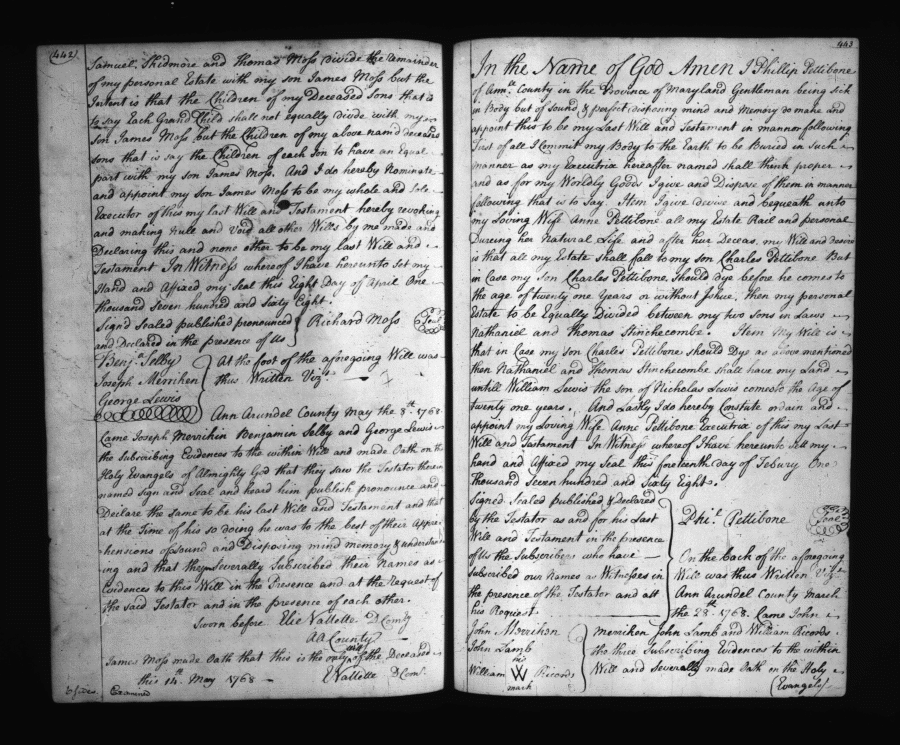 (442)
Samuel Skidmore and thomas Moss Divide the Remainder
of my personal Estate with my son James Moss but the
Intent is that the Children of my Deceased Sons that is
to say Each Grand Child shall not equally Divide with my
Son James Moss but the Children of my above named deceased
sons that is say the Children of each son to have an Equal
part with my son James Moss. And I do hereby Nominate
and appoint my son James Moss to be my whole and Sole
Executor of this my last Will and Testament hereby revoking
and making null and Void all other Wills by me made and
Declaring this and none other to be my last Will and
Testament In Witness whereof I have hereunto Set my
Hand and Affixed my Seal this Eight Day of April One
thousand Seven hundred and Sixty Eight.
Signd Sealed published pronounced
and Declared in the presence of us
Richard Moss
Seal
Benjn. Selby
Joseph Merriken
George Lewis
At the foot of the aforegoing Will was
thus Written Vizt.
Ann Arundel County May the 8th. 1768
Came Joseph Merrikin Benjamin Selby and George Lewis
the Subscribing Evidences to the within Will and made Oath on the
Holy Evangels of Almighty God that they saw the Testator therein
named Sign and Seal and heard him publish pronounce and
Declare the Same to be his last Will and Testament and that
at the Time of his so doing he was to the best of their Appre
hensions of Sound and Disposing mind memory & understand
ing and that they Severally Subscribed their Names as
Evidences to this Will in the Presence and at the Request of
the said Testator and in the presence of each other.
Sworn before Elie Vallette D Comry
AA County
James Moss made Oath that this is the only Will of the Deceased
this 14th. May 1768
EVallette D Comy.
Examined
443
In the Name of God Amen I Phillip Pettibone
of Ann County in the Province of Maryland Gentleman being Sick
in Body but of Sound & perfect disposing mind and Memory do make and
appoint this to be my Last Will and Testament in mannor following
First of all I Commit my Body to the Earth to be Buried in Such
manner as my Executrix hereafter named shall think proper
and as for my Worldly Goods I give and Dispose of them in manner
following that is to Say. Item I give devise and bequeath unto
my Loving Wife Anne Pettibone all my Estate Rail and personal
Dureing her Natural Life and after hur Deceas, my Will and desire
is that all my Estate Shall fall to my son Charles Pettibone But
in Case my son Charles Pettibone, should dye before he comes to
the age of twenty one Years or without Ishue, then my personal
Estate to be Equally Divided between my two Sons in Laws
Nathaniel and Thomas Stinchecombe. Item My Will is
that in Case my son Charles Pettibone should Dye as above mentioned
then Nathaniel and Thomas Stinchecombe shall have my Land
untill William Lewis the son of Nicholas Lewis comest the Age of
twenty one years. And Lastly I do hereby Constute ordain and
appoint my Loving Wife Anne Pettibone Executrix of this my Last
Will and Testament In Witness whereof I have hereunto Sett my
hand and Affixed my Seal this foreteenth day of Febury One
thousand Seven hundred and Sixty Eight.
Signed Sealed published & Declared
by the Testator as and for his Last
Will and Testament in the presence
of Us the Subscribers who have
Subscribed our Names as Witnesses in
the presence of the Testator and att
his Request
Phit. Pettibone
Seal
On the back of the aforegoing
Will was thus Written Viz
Ann Arundel County March
the 28th. 1768. Came John
John Merrikon
John Lamb
his
William W Ricords
mark
Merriken John Lamb and William Ricords
the three Subscribing Evidences to the within
Will and Severally made Oath on the Holy
(Evangels)